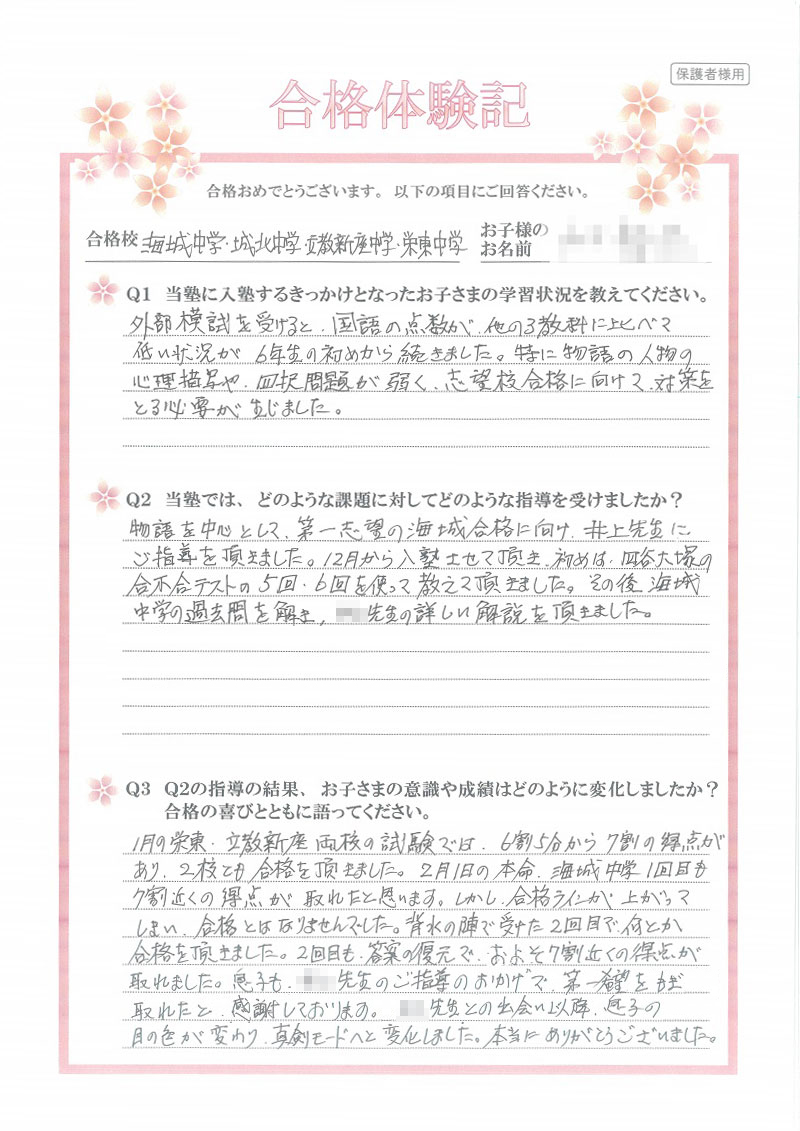 保護者様用
合格体験記
合格おめでとうございます。以下の項目にご回答ください。
合格校 海城中学・城北中学・立教新座中学・栄東中学
お子様の
お名前
Q1 当塾に入塾するきっかけとなったお子さまの学習状況を教えてください。
外部模試を受けると、国語の点数が、他の3教科に比べて
低い状況が6年生の初めから続きました。特に物語の人物の
心理描写や、四択問題が弱く、志望校合格に向けて、対策を
とる必要が生じました。
Q2 当塾では、どのような課題に対してどのような指導を受けましたか？
物語を中心として、第一志望の海城合格に向け、井上先生に
ご指導を頂きました。12月から入塾させて頂き、初めは、四谷大塚の
合不合テストの5回・6回を使って教えて頂きました。その後、海城
中学の過去問を解き、先生の詳しい解説を頂きました。
Q3 Q2の指導の結果、お子さまの意識や成績はどのように変化しましたか？
合格の喜びとともに語ってください。
1月の栄東・立教新座両校の試験では、6割5分から7割の得点が
あり、2校とも合格を頂きました。2月1日の本命、海城中学1回目も
7割近くの得点が取れたと思います。しかし、合格ラインが上がって
しまい、合格とはなりませんでした。背水の陣で受けた2回目で、何とか
合格を頂きました。2回目も、答案の復元で、およそ7割近くの得点が
取れました。息子も、先生のご指導のおかげで、第一希望をもぎ
取れたと、感謝しております。先生との出会い以降、息子の
目の色が変わり、真剣モードへと変化しました。本当にありがとうございました。